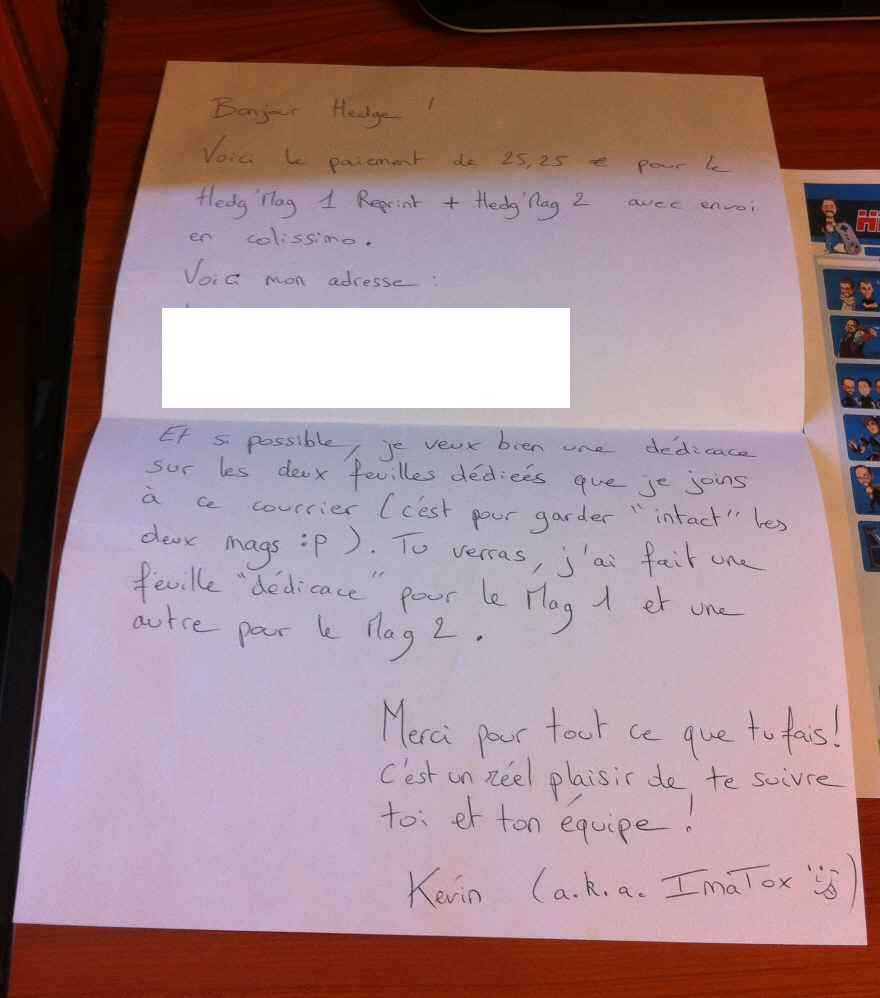 Bonjour Hedge !
Voici le paiement de 25,25 € pour le
Hedg'Mag 1 Reprint + Hedg'Mag 2 avec envoi
en colissimo.
Voici mon adresse :
Et si possible, je veux bien une dédicace
sur les deux feuilles dédiées que je joins
à ce courrier (c'est pour garder "intact" les
deux mags :p ). Tu verras, j'ai fait une
feuille "dédicace" pour le Mag 1 et une
autre pour le Mag 2.
Merci pour tout ce que tu fais!
C'est un réel plaisir de te suivre
toi et ton équipe !
Kevin (a.k.a. ImaTox )